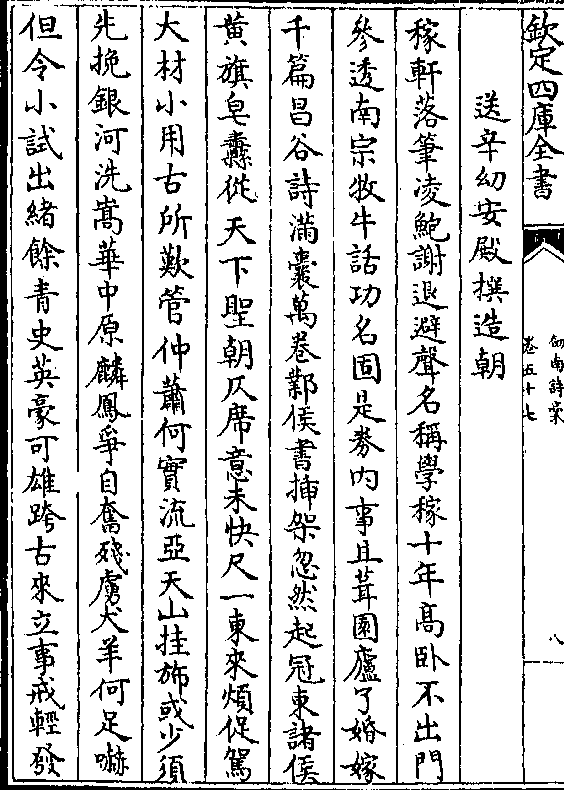 欽定四庫全書
劒南詩稾
卷五十七
八
送辛幼安殿撰造朝
稼軒落筆凌鮑謝退避聲名稱學稼十年高卧不出門
參透南宗牧牛話功名固是劵内事且葺園廬了婚嫁
千篇昌谷詩滿囊萬卷鄴侯書揷架忽然起冠東諸侯
黄旗皂纛從天下聖朝仄席意未快尺一東來煩促駕
大材小用古所歎管仲蕭何實流亞天山挂斾或少須
先挽銀河洗嵩華中原麟鳳争自奮殘虜犬羊何足嚇
但令小試出緒餘青史英豪可雄跨古來立事戒輕發